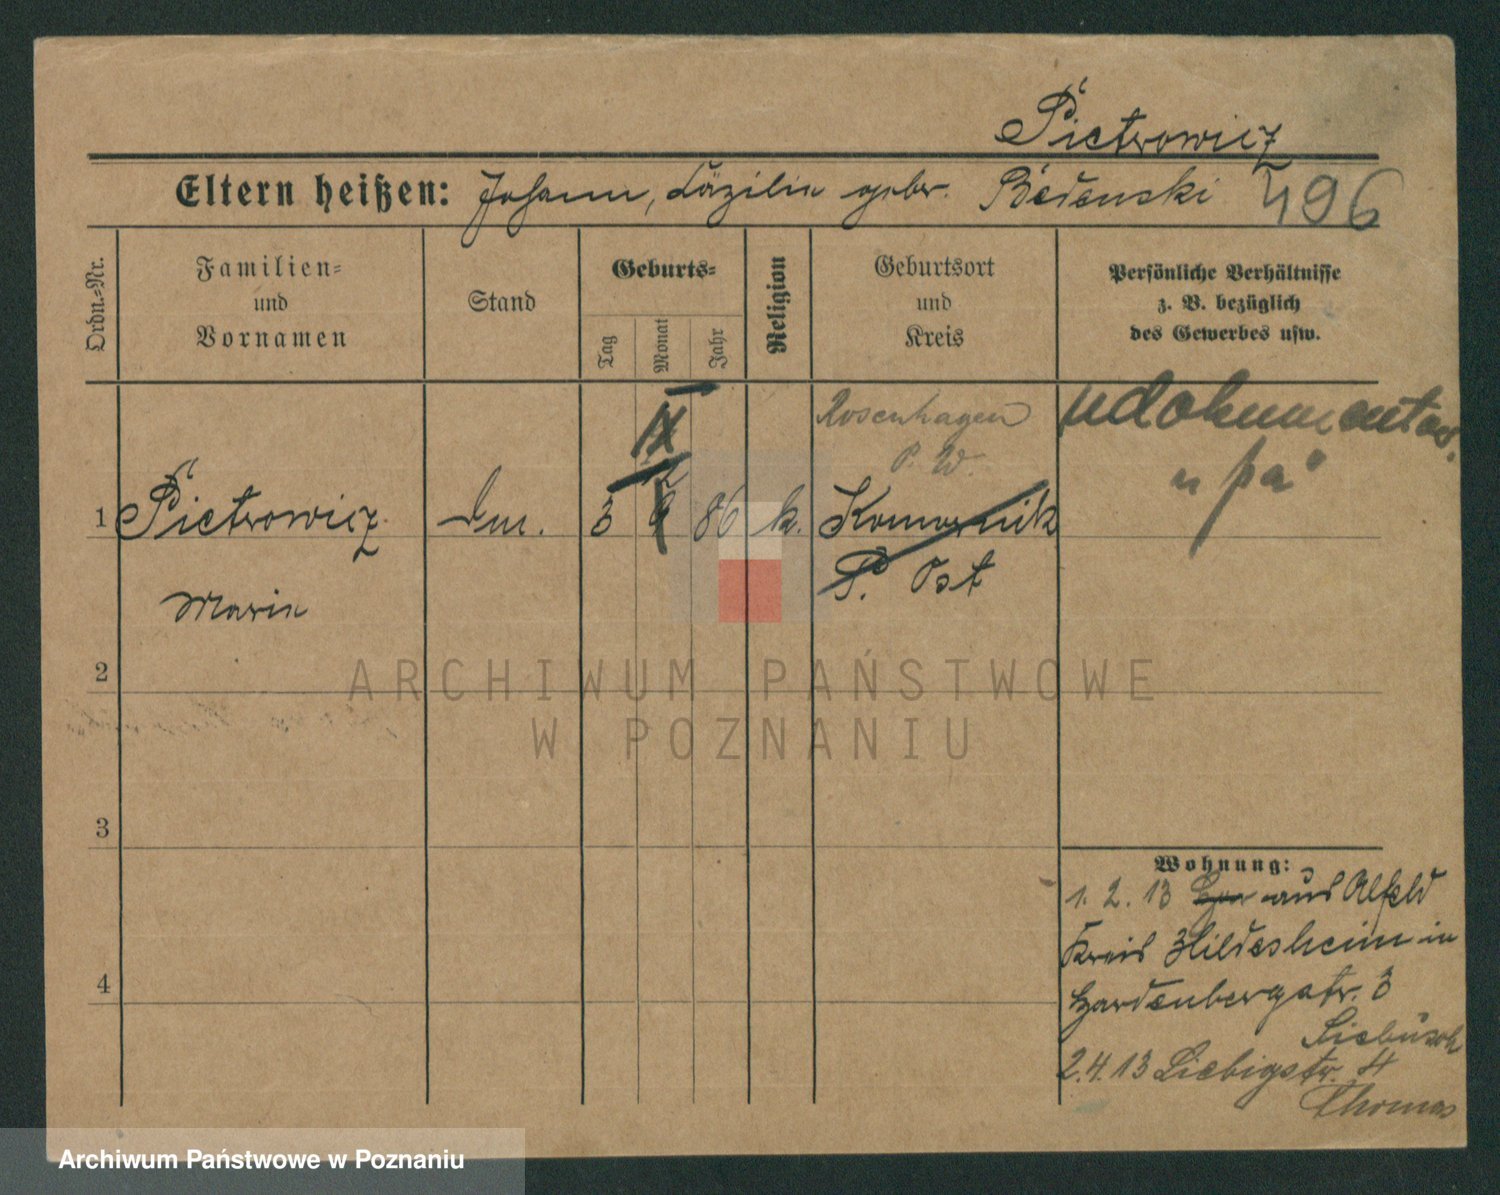 Pietrowicz
Eltern heißen: Johann, Cäzilie gebr. Bedenski 496
Ordn.-Nr.
Familien-
und
Vornamen
Stand
Geburts-
Tag
Monat
Jahr
Religion
Geburtsort
und
Kreis
Persönliche Verhältnisse
z. B. bezüglich
des Gewerbes usw.
Rosenhagen
P. W.
IX
1 Pietrowicz 3 9 86 k. Komornik
P. Ost
Marie
2
3
4
Wohnung:
1. 2. 13 aus Alfeld
Kreis Hildesheim in
Hardenbergstr. 3
Liebüsch
2.4.13 Liebigstr. 4
Thomas
ARCHIWUM PAŃSTWOWE
W POZNANIU
Archiwum Państwowe w Poznaniu